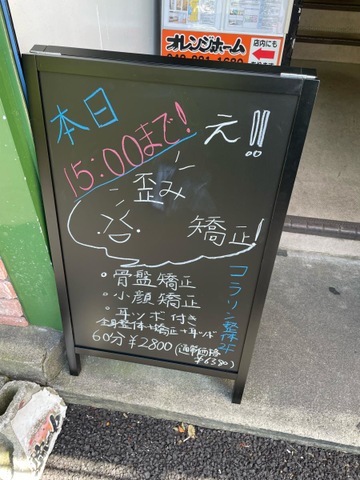 オレンジホーム
店内にも
本日
15:00まで!
え!!
歪み
矯正!
。骨盤矯正
。小顔矯正
。耳ツボ付き
全身整体+矯正+耳ツボ
60分¥2800(通常価格
¥6380)
コラリン整体2F